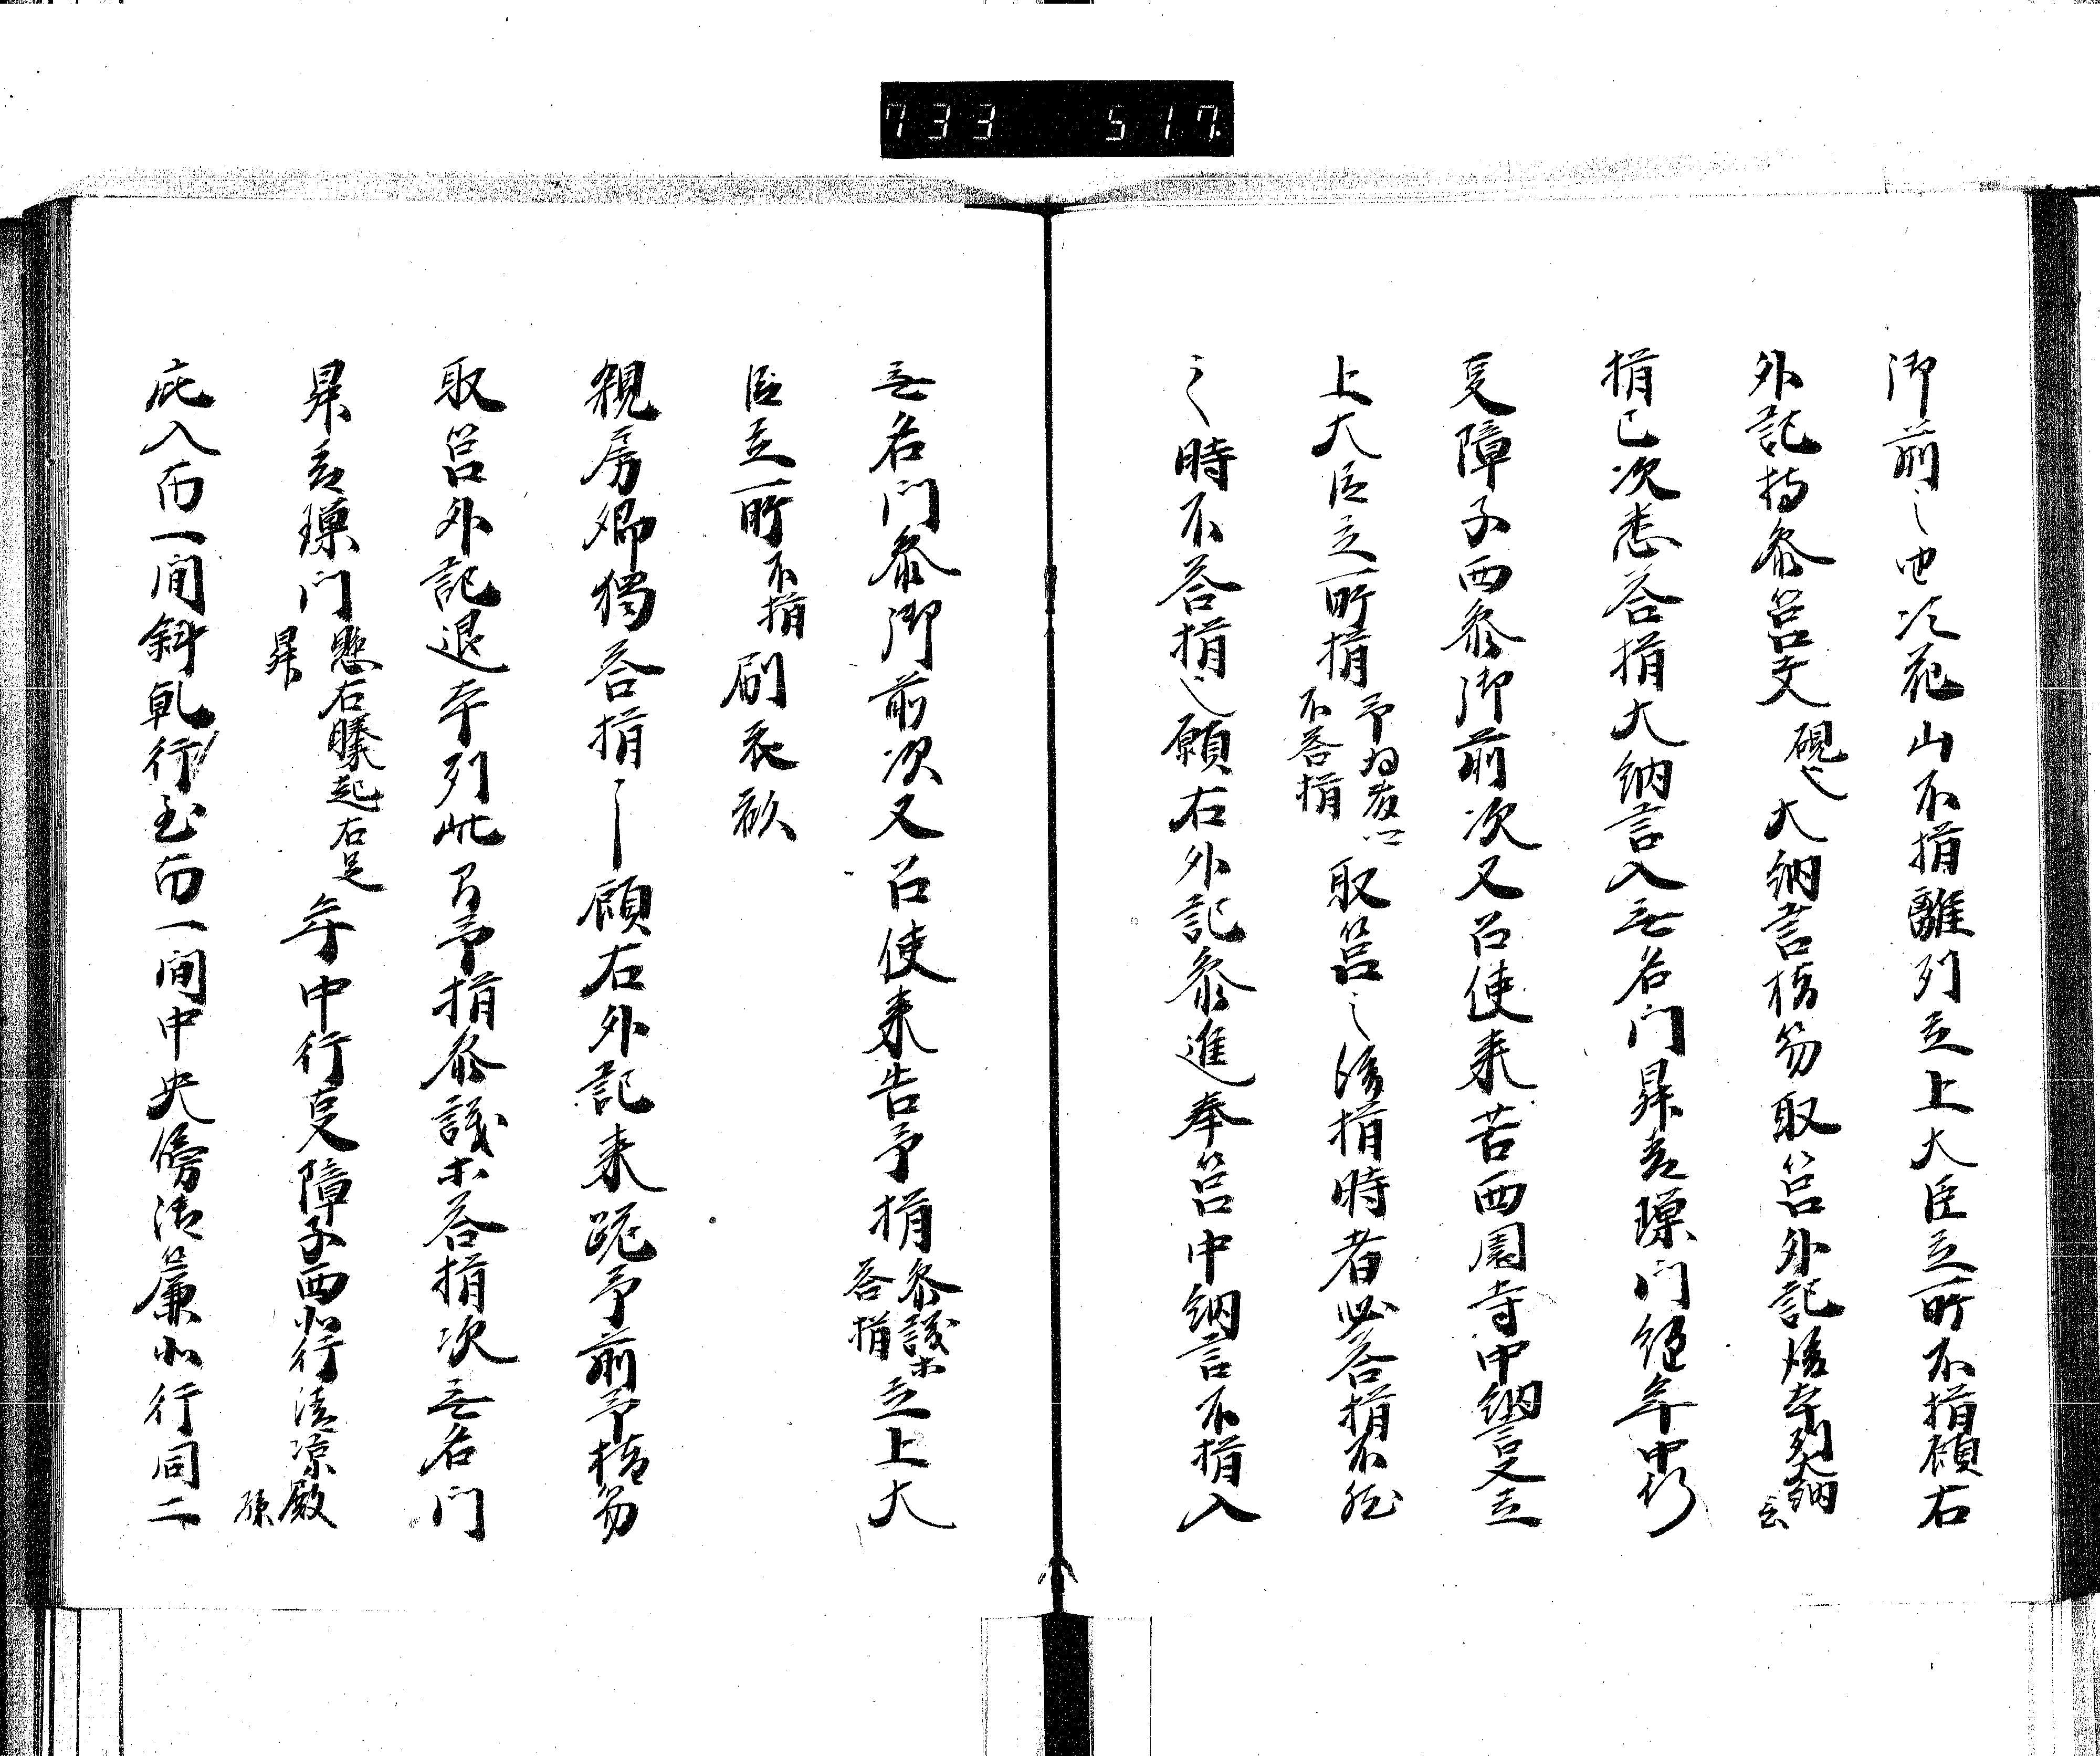 733 517.
御前之也次花山不揖離列立上大臣立所不揖顧右
外記持参筥文硯也大納言揷笏取筥外記復本列大納言
揖已次悉答揖大納言入无名門昇青璅門経年中行
叓障子西参御前次又召使来告西園寺中納言又立
上大臣立所揖予為上不答揖取筥之後揖時者必答揖不然
之時不答揖之顧右外記参進奉筥中納言不揖入
无名門参御前次又召使来告予揖参議木答揖立上大
臣立所不揖刷衣歟
親房卿獨答揖之顧右外記来跪予前予揷笏
取筥外記退本列此間予揖参議木答揖次无名門
昇青璅門懸右膝起右足昇年中行叓障子西北行清凉殿孫
庇入南一間斜乾行至南一間中央傍御簾北行同二